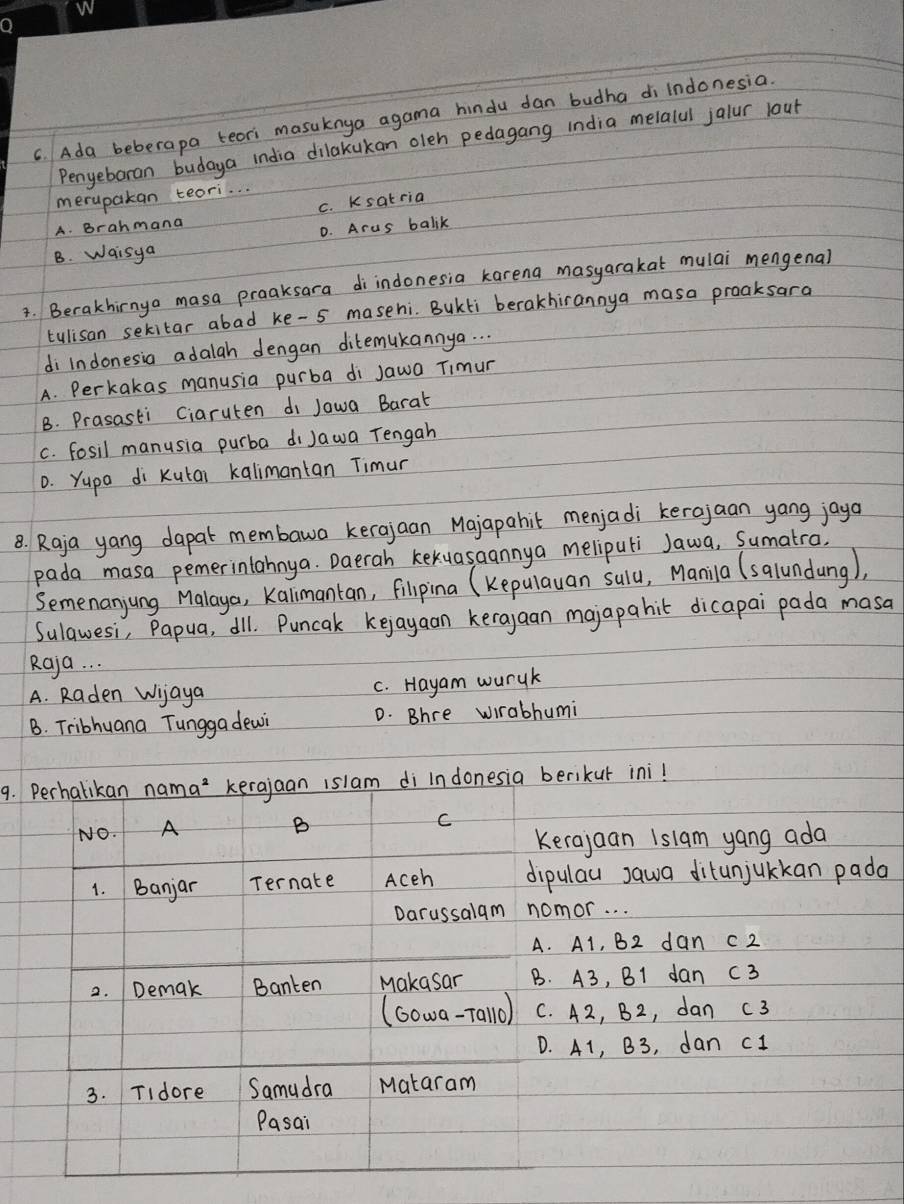 Q
W
6. Ada beberapa teori masuknya agama hindu dan budha di Indonesia.
Penyebaran budaya india dilakukan oleh pedagang india melalui jalur laut
merupakan teori...
A. Brahmana
C. Ksatria
B. Waisya
D. Arus balik
7. Berakhirnya masa praaksara di indonesia karena masyarakat mulai mengenal
tulisan sekitar abad ke-5 masehi. Bukti berakhirannya masa praaksara
di Indonesia adalah dengan ditemukannya...
A. Perkakas manusia purba di Jawa Timur
B. Prasasti Ciaruten di Jawa Barat
C. fosil manusia purba di Jawa Tengah
D. Yupa di Kutai kalimantan Timur
8. Raja yang dapat membawa kerajaan Majapahit menjadi kerajaan yang jaya
pada masa pemerintahnya. Daerah kekuasaannya meliputi Jawa, Sumatra,
Semenanjung Malaya, Kalimantan, filipina (kepulauan sulu, Manila (salundung),
Sulawesi, Papua, dll. Puncak kejayaan kerajaan majapahit dicapai pada masa
Raja...
A. Raden Wijaya
C. Hayam wuruk
B. Tribhuana Tunggadewi
D. Bhre wirabhumi
9. Perhatikan nama² kerajaan islam di Indonesia berikut ini!
No. A B C
1. Banjar Ternate Aceh
Darussalam
2. Demak Banten Makasar
(Gowa-Tallo)
3. Tidore Samudra Mataram
Pasai
Kerajaan Islam yang ada
dipulau Jawa ditunjukkan pada
nomor...
A. A1, B2 dan C2
B. A3, B1 dan C3
C. A2, B2, dan C3
D. A1, B3, dan C1